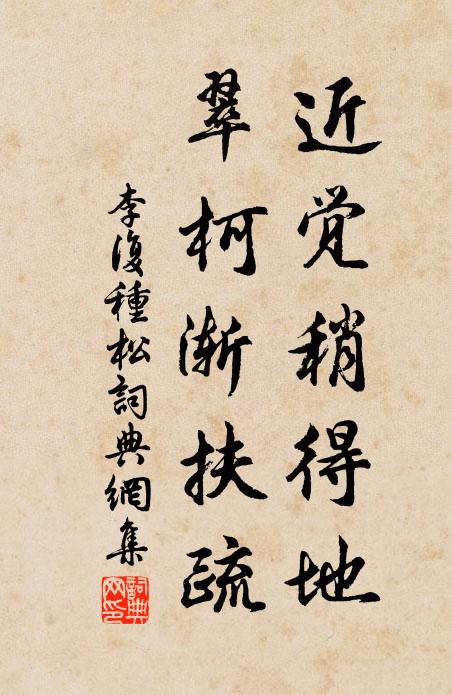 近觉稍得地
翠柯渐扶疏
李復種松詞典網集
詞典网印